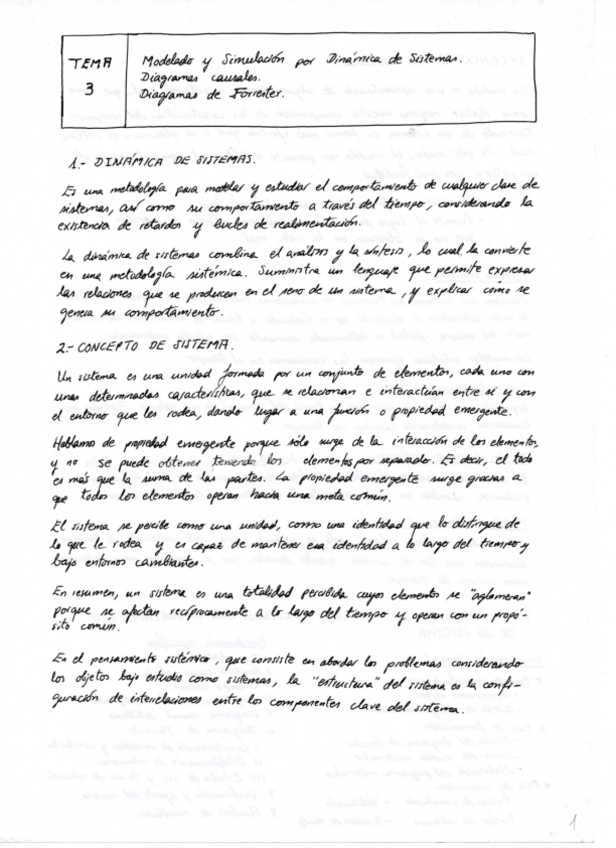 TEMA
3
Modelado y Simulación por Dinámica de Sistemas.
Diagramas causales.
Diagramas de Forrester.
1.- DINÁMICA DE SISTEMAS.
Es una metodología para modelar y estudiar el comportamiento de cualquier clase de
sistemas, así como su comportamiento a través del tiempo, considerando la
existencia de retardos y bucles de realimentación.
La dinámica de sistemas combina el análisis y la síntesis, lo cual la convierte
en una metodología sistémica. Suministra un lenguaje que permite expresar
las relaciones que se producen en el seno de un sistema, y explicar cómo se
genera su comportamiento.
2.- CONCEPTO DE SISTEMA.
Un sistema es una unidad formada por un conjunto de elementos, cada uno con
unas determinadas características, que se relacionan e interactúan entre sí y con
el entorno que les rodea, dando lugar a una función o propiedad emergente.
Hablamos de propiedad emergente porque sólo surge de la interacción de los elementos,
y no se puede obtener teniendo los elementos por separado. Es decir, el todo
es más que la suma de las partes. La propiedad emergente surge gracias a
que todos los elementos operan hacia una meta común.
El sistema se percibe como una unidad, como una identidad que lo distingue de
lo que le rodea y es capaz de mantener esa identidad a lo largo del tiempo y
bajo entornos cambiantes.
En resumen, un sistema es una totalidad percibida cuyos elementos se "aglomeran"
porque se afectan recíprocamente a lo largo del tiempo y operan con un propó-
sito común.
En el pensamiento sistémico, que consiste en abordar los problemas considerando
los objetos bajo estudio como sistemas, la "estructura" del sistema es la confi-
guración de interrelaciones entre los componentes clave del sistema.
1